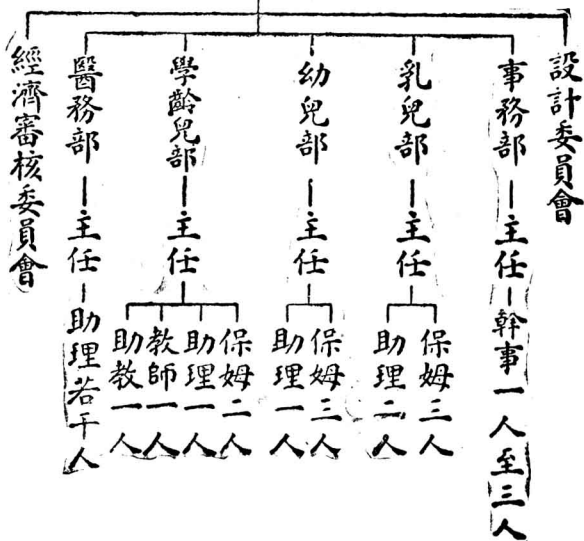 設計委員會
事務部
主任
幹事一人至三人
乳兒部
主任
保姆三人
助理二人
幼兒部
主任
保姆三人
助理一人
學齡兒部
主任
保姆二人
助理一人
教師一人
助教一人
醫務部
主任
助理若干人
經濟審核委員會